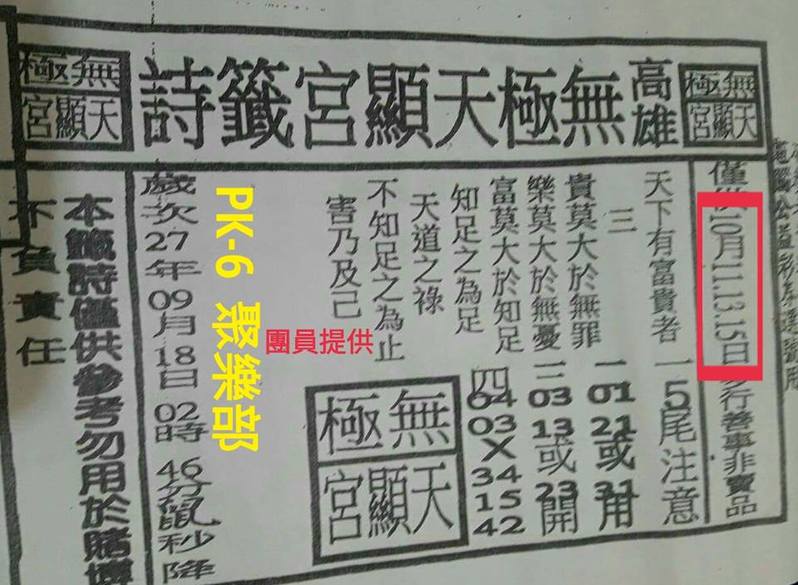 無極
天顯宮
高雄
無極天顯宮籤詩
無極
天顯宮
僅供10月11.13.15日多行善事非賣品
天下有富貴者
三
貴莫大於無罪
樂莫大於無憂
富莫大於知足
知足之為足
天道之祿
不知足之為止
害乃及己
一5尾注意
二01 21或31用
三03 13或23開
四04 03X34 15 42
無極
天顯宮
團員提供
PK-6 聚樂部
歲次27年09月18日02時46分鼠秒降
本籤詩僅供參考勿用於賭博
不負責任